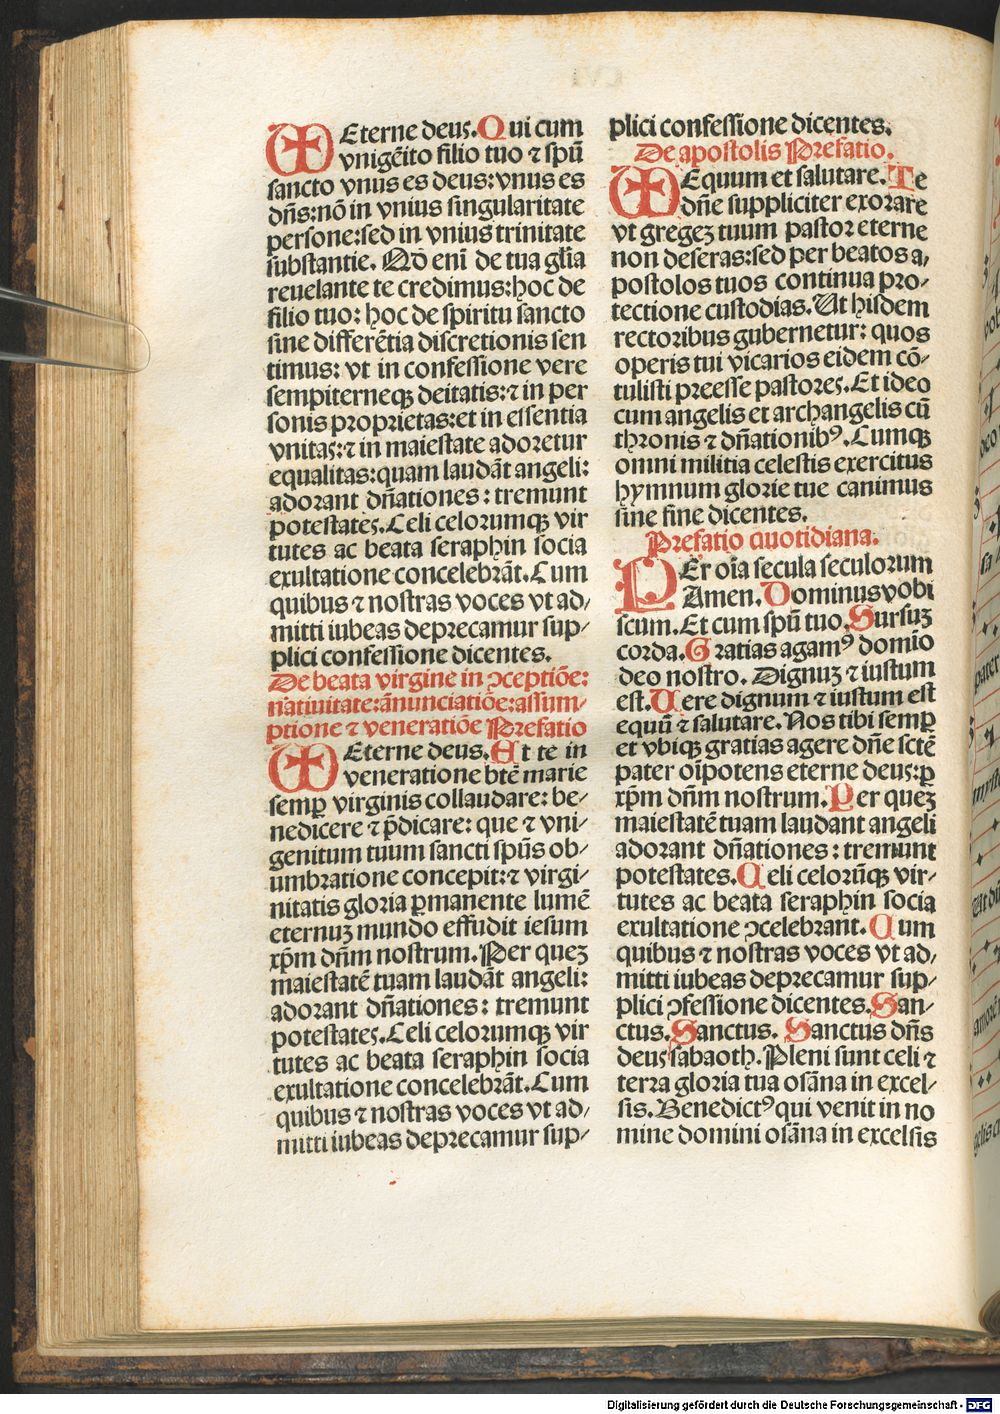 Eterne deus. Qui cum
vnigēito filio tuo ⁊ spū
sancto vnus es deus: vnus es
dn̄s: nō in vnius singularitate
persone: sed in vnius trinitate
substantie. Nō eni̅ de tua gl̄ia
reuelante te credimus: hoc de
filio tuo: hoc de spiritu sancto
sine differētia discretionis sen
timus: vt in confessione vere
sempiterneqꝫ deitatis: ⁊ in per
sonis proprietas: et in essentia
vnitas: ⁊ in maiestate adoretur
equalitas: quam laudāt angeli:
adorant dn̄ationes: tremunt
potestates. Celi celorumqꝫ vir
tutes ac beata seraphin socia
exultatione concelebrāt. Cum
quibus ⁊ nostras voces vt ad⸗
mitti iubeas deprecamur sup⸗
plici confessione dicentes.
De beata virgine in ꝯceptiōe:
natiuitate: ānunciatiōe: assum⸗
ptione ⁊ veneratiōe Prefatio
Eterne deus. Et te in
veneratione btē marie
semꝑ virginis collaudare: be⸗
nedicere ⁊ p̄dicare: que ⁊ vni⸗
genitum tuum sancti spūs ob⸗
umbratione concepit: ⁊ virgi⸗
nitatis gloria ꝑmanente lumē
eternuꝫ mundo effudit iesum
xp̄m dn̄m nostrum. Per queꝫ
maiestatē tuam laudāt angeli:
adorant dn̄ationes: tremunt
potestates. Celi celorumqꝫ vir
tutes ac beata seraphin socia
exultatione concelebrāt. Cum
quibus ⁊ nostras voces vt ad⸗
mitti iubeas deprecamur sup⸗
plici confessione dicentes.
De apostolis Prefatio.
VEquum et salutare. Te
dn̄e suppliciter exorare
vt gregeꝫ tuum pastor eterne
non deseras: sed per beatos a⸗
postolos tuos continua pro⸗
tectione custodias. Ut hisdem
rectoribus gubernetur: quos
operis tui vicarios eidem cō⸗
tulisti preesse pastores. Et ideo
cum angelis et archangelis cū
thronis ⁊ dn̄ationibꝰ. Cumqꝫ
omni militia celestis exercitus
hymnum glorie tue canimus
sine fine dicentes.
Prefatio quotidiana.
PEr oīa secula seculorum
Amen. Dominus vobi
scum. Et cum spū tuo. Sursuꝫ
corda. Gratias agamꝰ domīo
deo nostro. Dignuꝫ ⁊ iustum
est. Uere dignum ⁊ iustum est
equū ⁊ salutare. Nos tibi semꝑ
et vbiqꝫ gratias agere dn̄e sctē
pater oīpotens eterne deus: ꝑ
xp̄m dn̄m nostrum. Per queꝫ
maiestatē tuam laudant angeli
adorant dn̄ationes: tremunt
potestates. Celi celorūqꝫ vir⸗
tutes ac beata seraphin socia
exultatione ꝯcelebrant. Cum
quibus ⁊ nostras voces vt ad⸗
mitti iubeas deprecamur sup⸗
plici ꝯfessione dicentes. San⸗
ctus. Sanctus. Sanctus dn̄s
deus sabaoth. Pleni sunt celi ⁊
terra gloria tua osāna in excel⸗
sis. Benedictꝰ qui venit in no
mine domini osāna in excelsis
Digitalisierung gefördert durch die Deutsche Forschungsgemeinschaft - DFG